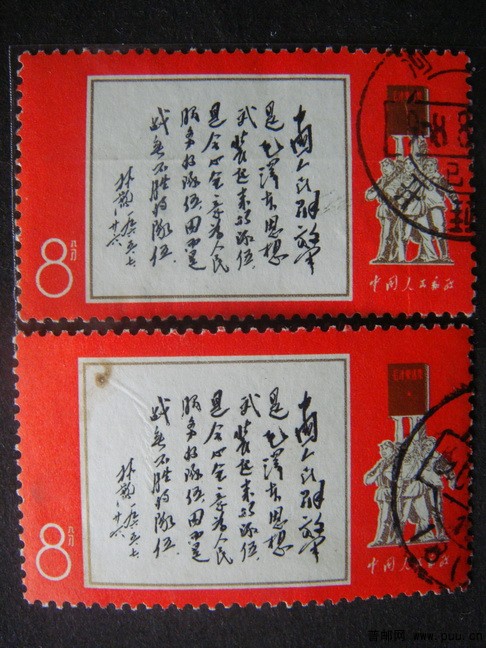 中國人民解放軍
是毛澤东思想
武裝起来的隊伍，
是全心全意为人民
服务的隊伍，因而是
战无不胜的隊伍。
林彪 一九六五、七、
廿六、
8 八分
中国人民邮政
中國人民解放軍
是毛澤东思想
武裝起来的隊伍，
是全心全意为人民
服务的隊伍，因而是
战无不胜的隊伍。
林彪 一九六五、七、
廿六、
8 八分
中国人民邮政
普邮网 www.puu.cn